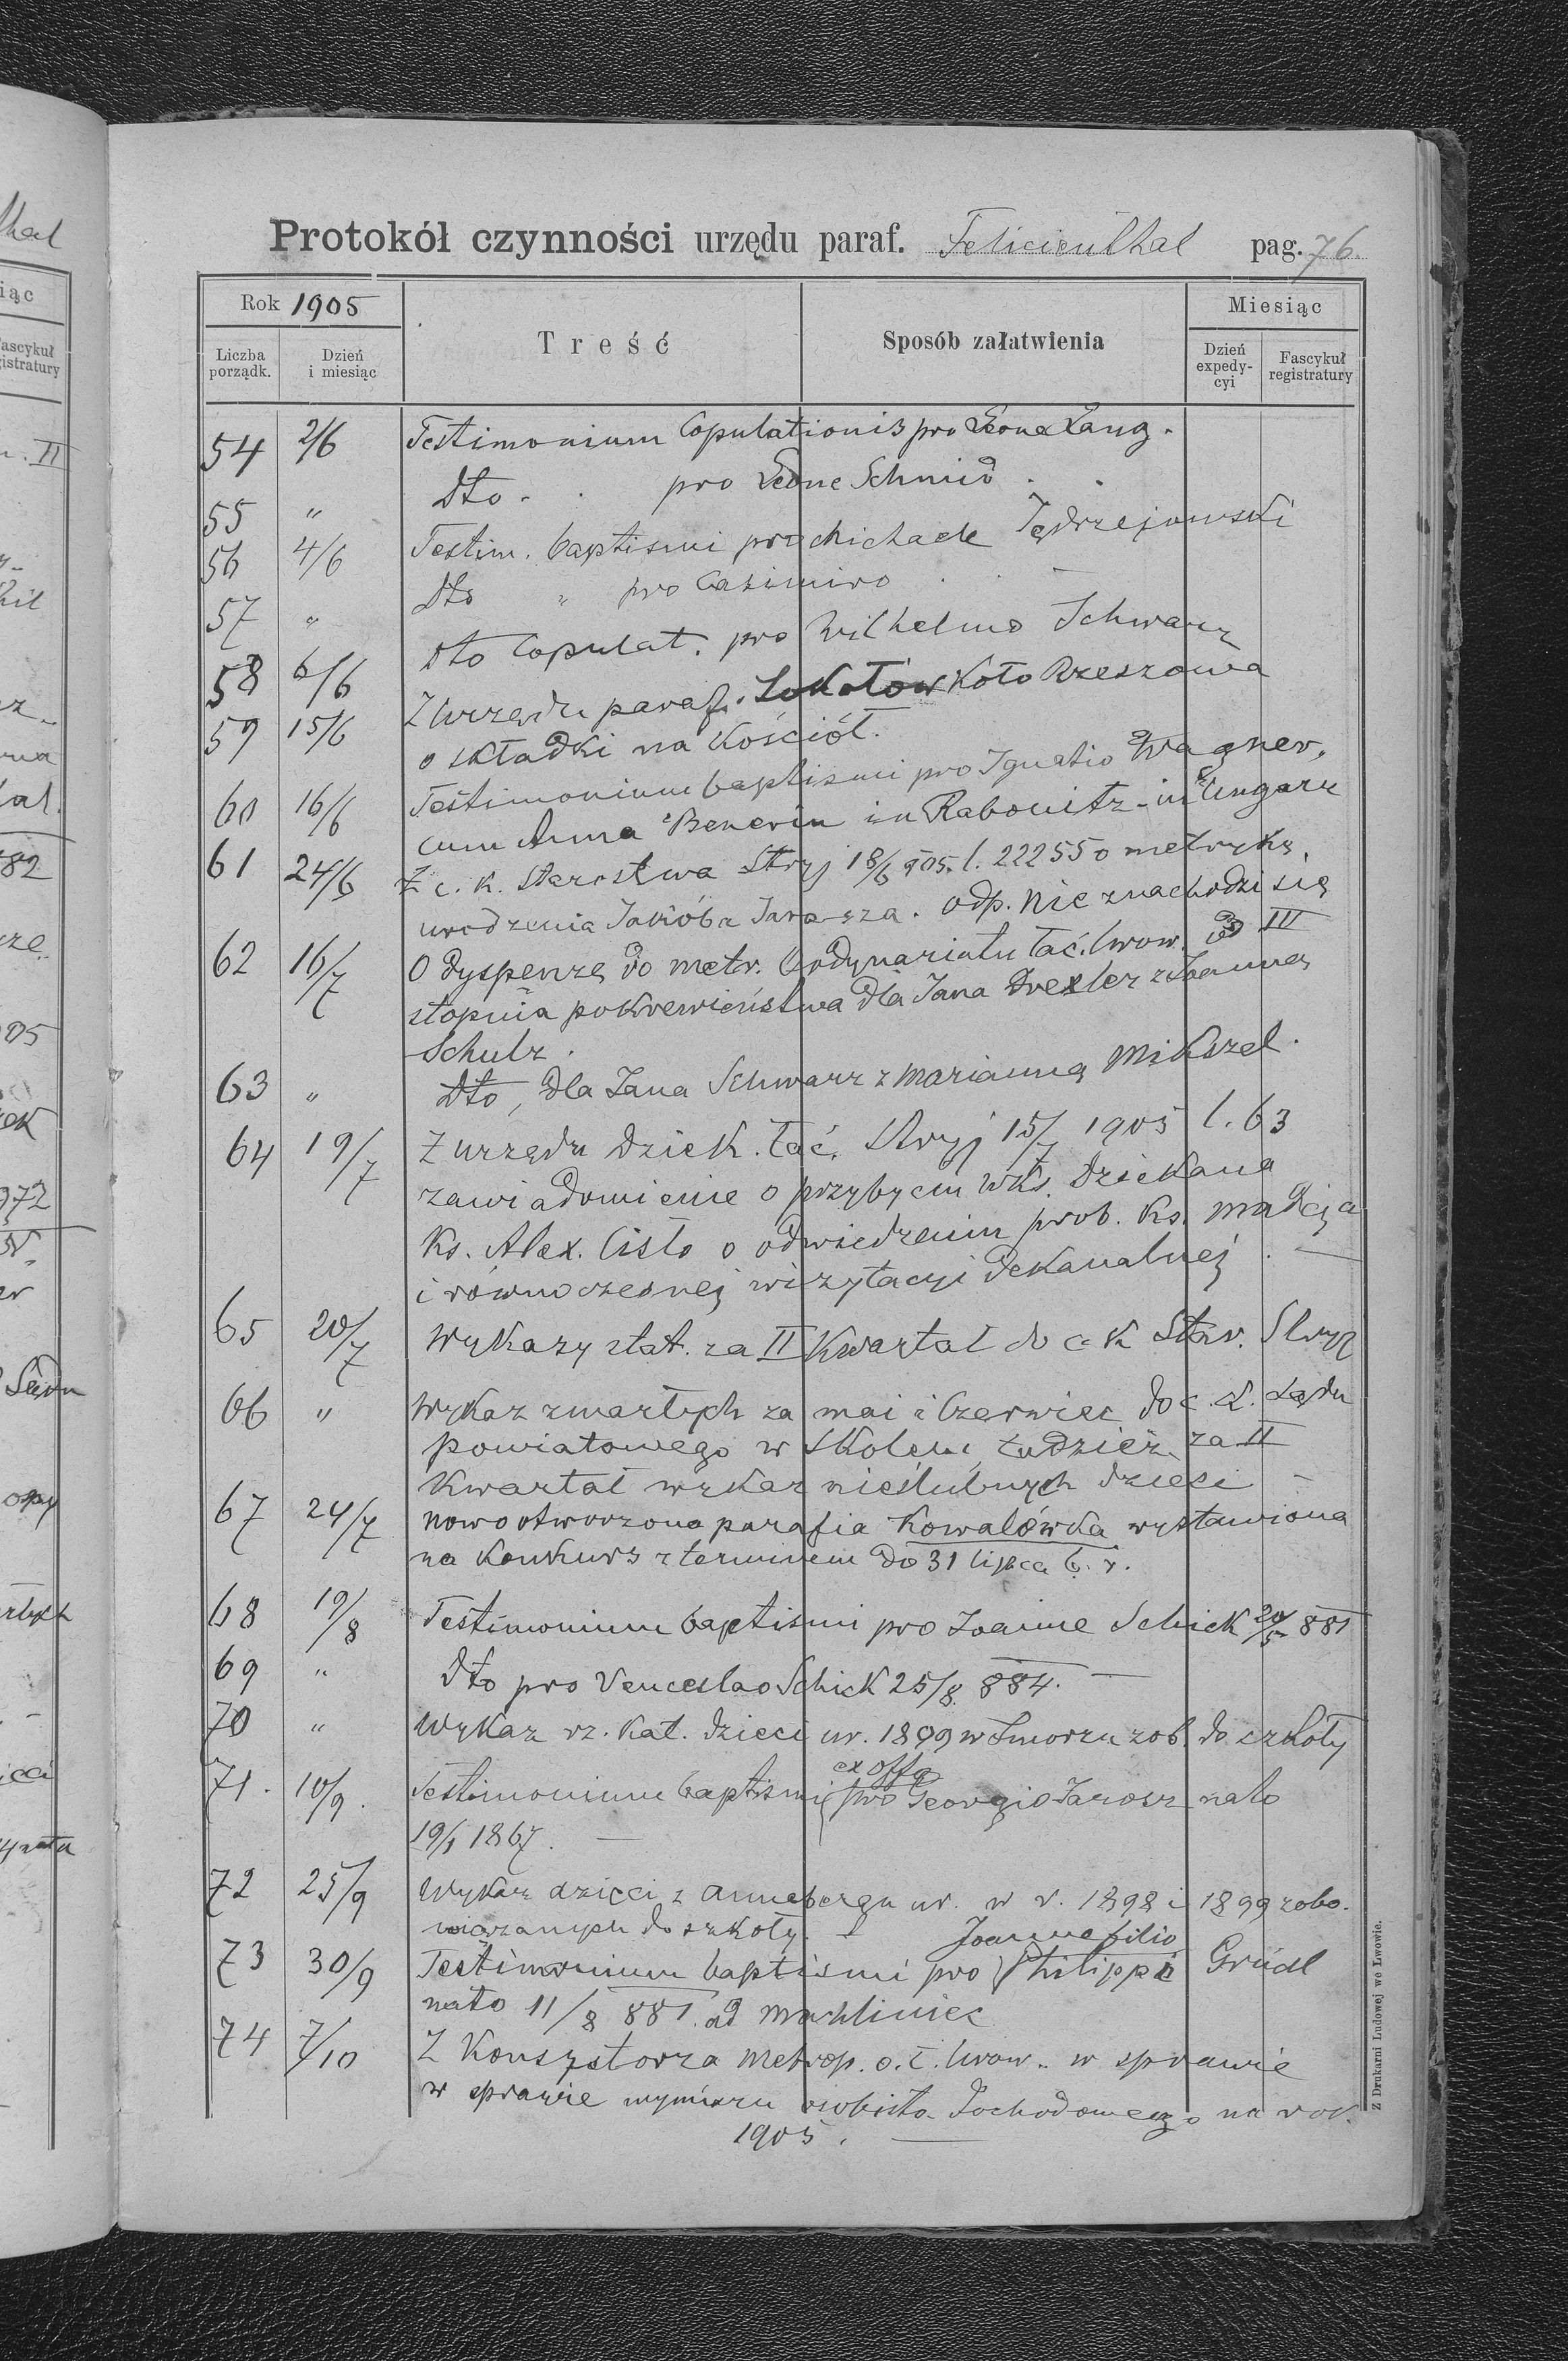 Protokół czynności urzędu paraf. Felicienthal pag. 76.
Rok 1905
Treść
Sposób załatwienia
Miesiąc
Liczba porządk.
Dzień i miesiąc
Dzień expedycyi
Fascykuł registratury
54 2/6 Testimonium Copulationis pro Leone Lang.
55 " Dto. . pro Leone Schmid . .
56 4/6 Testim. baptismi pro Michaele Jędrzejowski
57 " Dto " pro Casimiro . . —
58 6/6 Dto Copulat. pro Wilhelmo Schwarz
59 15/6 Z urzędu paraf. Sokołów koło Rzeszowa
o składki na kościół.
60 16/6 Testimonium baptismi pro Ignatio Wagner,
cum Anna in Rabowitz in Ungaru
61 24/6 Z c. k. Starostwa Stryj 18/6 905. l. 22255 o metrykę
urodzenia Jakóba Jarosza. odp. nie znachodzi się
62 16/7 O dyspenzę do metr. Ordynariatu łać. lwow. od III
stopnia pokrewieństwa dla Jana Drexler z Joanną
Schulz.
63 " Dto, dla Jana Schwarz z Marianną Mikszel.
64 19/7 Z urzędu dziek. łać. Stryj 15/7 1905 l. 63
zawiadomienie o przybyciu Wks. Dziekana
Ks. Alex. Cisło o odwiedzeniu prob. ks. Macieja
i równoczesnej wizytacyi dekanalnej . —
65 20/7 Wykazy stat. za II Kwartał do c. k Star. Stryj
66 " Wykaz zmarłych za mai i Czerwiec do c. k. Sądu
powiatowego w Skolem, tudzież za II
kwartał wykaz nieślubnych dzieci —
67 24/7 nowo otworzona parafia Kowalówka wystawiona
na konkurs z terminem do 31 lipca b. r.
68 19/8 Testimonium baptismi pro Joanne Schick 20/5 881
69 " Dto pro Venceslao Schick 25/8. 884. —
70 " Wykaz rz. kat. dzieci ur. 1899 w Smorzu zob. do szkoły
71. 10/9. Testimonium baptismi ex offo pro Georgio Jarosz nato
19/1 1867. —
72 25/9 Wykaz dzieci z Annabergu ur. w r. 1898 i 1899 zobo-
wiązanych do szkoły. —
73 30/9 Testimonium baptismi pro Joanne filio Philippi Gründl
nato 11/8 881. ad Machliniec
74 7/10 Z Konsystorza Metrop. o. ł. lwow. w sprawie
w sprawie wymiaru osobisto dochodowego na rok.
1905. —
Z Drukarni Ludowej we Lwowie.